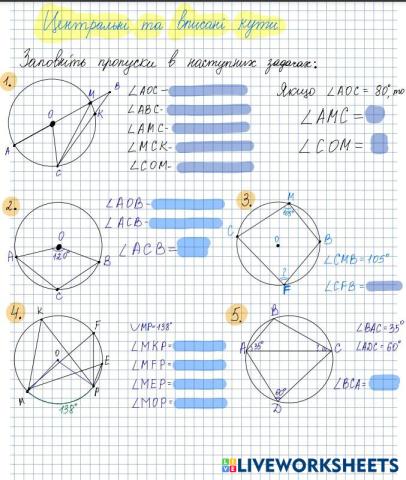 Центральні та вписані кути
Заповніть пропуски в наступних задачах:
1.
A
O
M
B
K
C
∠AOC -
∠ABC -
∠AMC -
∠MCK -
∠COM -
Якщо ∠AOC = 80°, то
∠AMC =
∠COM =
2.
O
120°
A
B
C
∠AOB -
∠ACB -
∠ACB =
3.
M
105°
C
O
B
?
F
∠CMB = 105°
∠CFB =
4.
K
F
O
E
M
P
138°
∪MP = 138°
∠MKP =
∠MFP =
∠MEP =
∠MOP =
5.
B
A
35°
C
60°
D
∠BAC = 35°
∠ADC = 60°
∠BCA =
LIVEWORKSHEETS